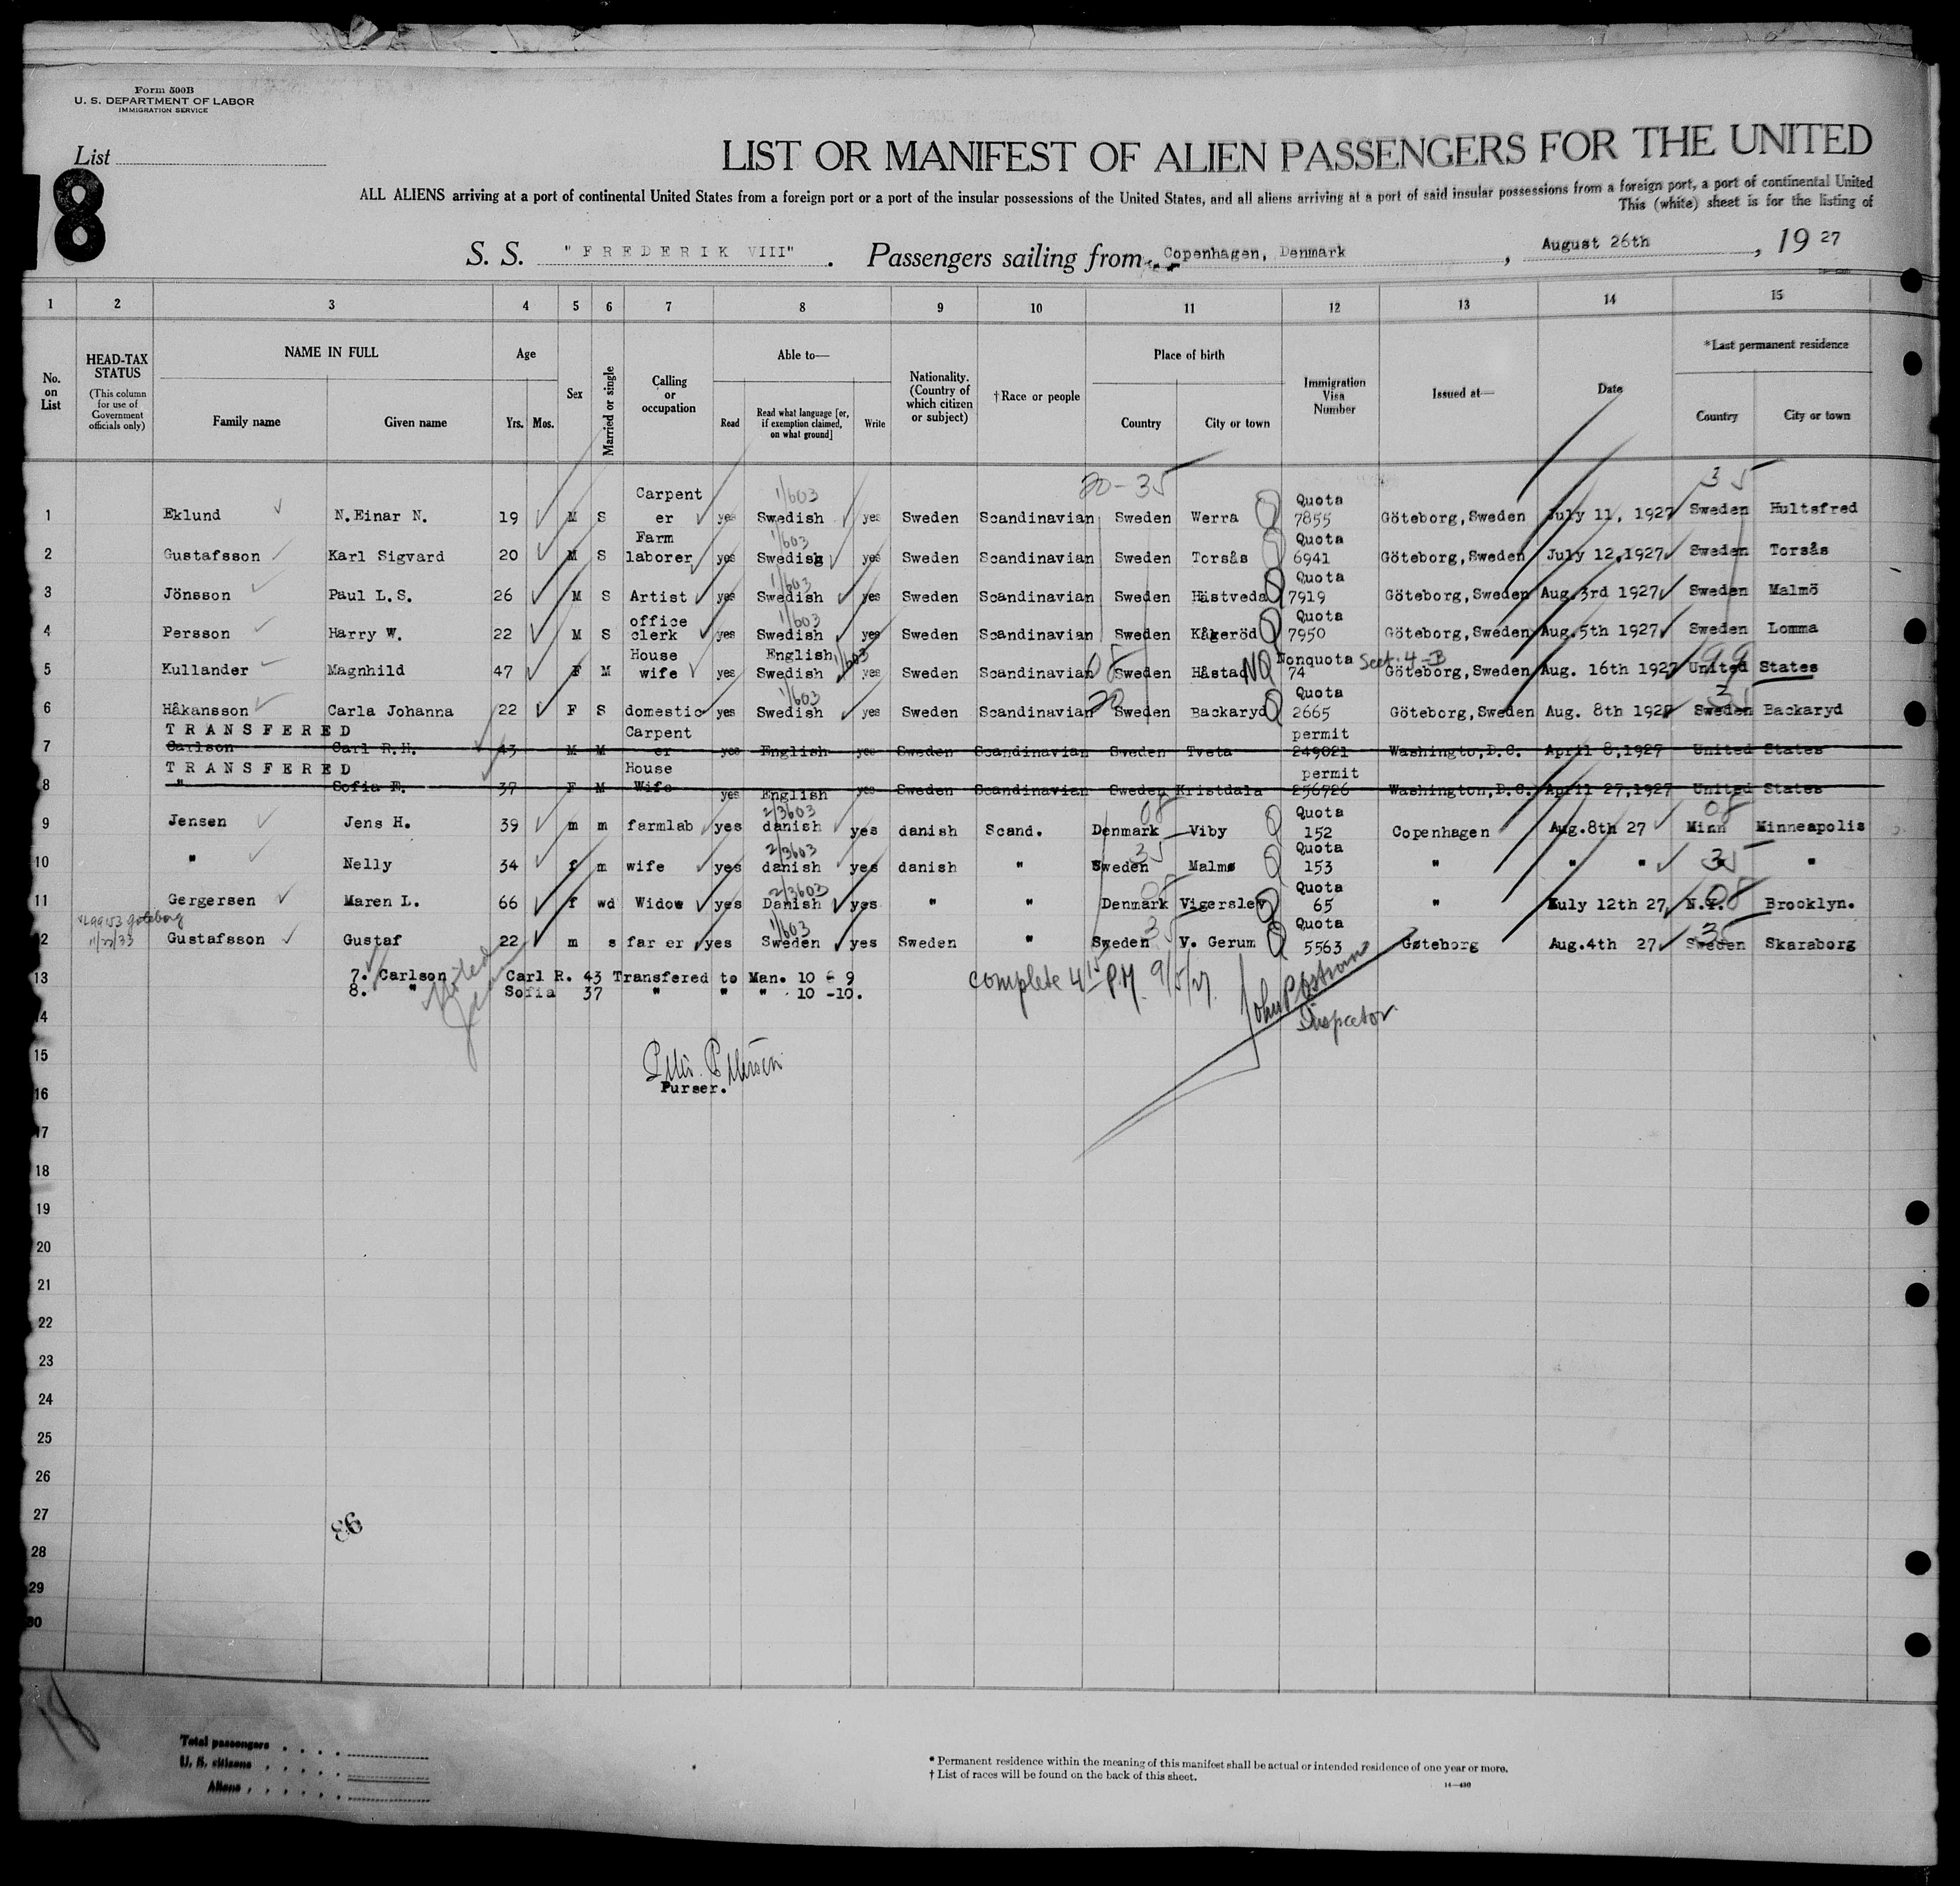 Form 500B
U. S. DEPARTMENT OF LABOR
IMMIGRATION SERVICE
List
8
LIST OR MANIFEST OF ALIEN PASSENGERS FOR THE UNITED
ALL ALIENS arriving at a port of continental United States from a foreign port or a port of the insular possessions of the United States, and all aliens arriving at a port of said insular possessions from a foreign port, a port of continental United
This (white) sheet is for the listing of
S. S. "FREDERIK VIII". Passengers sailing from Copenhagen, Denmark, August 26th, 1927
1 2 3 4 5 6 7 8 9 10 11 12 13 14 15
No. on List
HEAD-TAX STATUS
(This column for use of Government officials only)
NAME IN FULL
Family name Given name
Age
Yrs. Mos.
Sex
Married or single
Calling or occupation
Able to—
Read
Read what language [or, if exemption claimed, on what ground]
Write
Nationality. (Country of which citizen or subject)
†Race or people
Place of birth
Country City or town
Immigration Visa Number
Issued at—
Date
*Last permanent residence
Country City or town
20-35 35
1 Eklund N.Einar N. 19 M S Carpenter yes 1/603 Swedish yes Sweden Scandinavian Sweden Werra Q Quota 7855 Göteborg,Sweden July 11, 1927 Sweden Hultsfred
2 Gustafsson Karl Sigvard 20 M S Farm laborer yes 1/603 Swedish yes Sweden Scandinavian Sweden Torsås Q Quota 6941 Göteborg,Sweden July 12,1927 Sweden Torsås
3 Jönsson Paul L.S. 26 M S Artist yes 1/603 Swedish yes Sweden Scandinavian Sweden Hästveda Q Quota 7919 Göteborg,Sweden Aug.3rd 1927 Sweden Malmö
4 Persson Harry W. 22 M S office clerk yes 1/603 Swedish yes Sweden Scandinavian Sweden Kågeröd Q Quota 7950 Göteborg,Sweden Aug.5th 1927 Sweden Lomma
5 Kullander Magnhild 47 F M House wife yes English Swedish 1/603 yes Sweden Scandinavian 08 Sweden Håstad NQ Nonquota 74 Sect. 4-B Göteborg,Sweden Aug. 16th 1927 99 United States
6 Håkansson Carla Johanna 22 F S domestic yes 1/603 Swedish yes Sweden Scandinavian 20 Sweden Backaryd Q Quota 2665 Göteborg,Sweden Aug. 8th 1927 35 Sweden Backaryd
TRANSFERED
7 Carlson Carl R.H. 43 M M Carpenter yes English yes Sweden Scandinavian Sweden Tveta permit 249021 Washingto,D.C. April 8,1927 United States
TRANSFERED
8 " Sofia E. 37 F M House Wife yes English yes Sweden Scandinavian Sweden Kristdala permit 256726 Washington,D.C. April 27,1927 United States
9 Jensen Jens H. 39 m m farmlab yes 2/3603 danish yes danish Scand. 08 Denmark Viby Q Quota 152 Copenhagen Aug.8th 27 08 Minn Minneapolis
10 " Nelly 34 f m wife yes 2/3603 danish yes danish " 35 Sweden Malmø Q Quota 153 " " " 35 "
11 Gergersen Maren L. 66 f wd Widow yes 2/3603 Danish yes " " 08 Denmark Vigerslev Q Quota 65 " July 12th 27 N.Y. 08 Brooklyn.
11/22/33
2 Gustafsson Gustaf 22 m s far er yes 1/603 Sweden yes Sweden " 35 Sweden V. Gerum Q Quota 5563 Gøteborg Aug.4th 27 35 Sweden Skaraborg
13 7. Carlson Carl R. 43 Transfered to Man. 10 - 9
8. " Sofia 37 " " " 10 -10.
complete 4 15 P.M. 9/5/27.
Inspector
14
15
Purser.
16
17
18
19
20
21
22
23
24
25
26
27
86
28
29
30
18
Total passengers
U. S. citizens
Aliens
* Permanent residence within the meaning of this manifest shall be actual or intended residence of one year or more.
† List of races will be found on the back of this sheet.
14—430